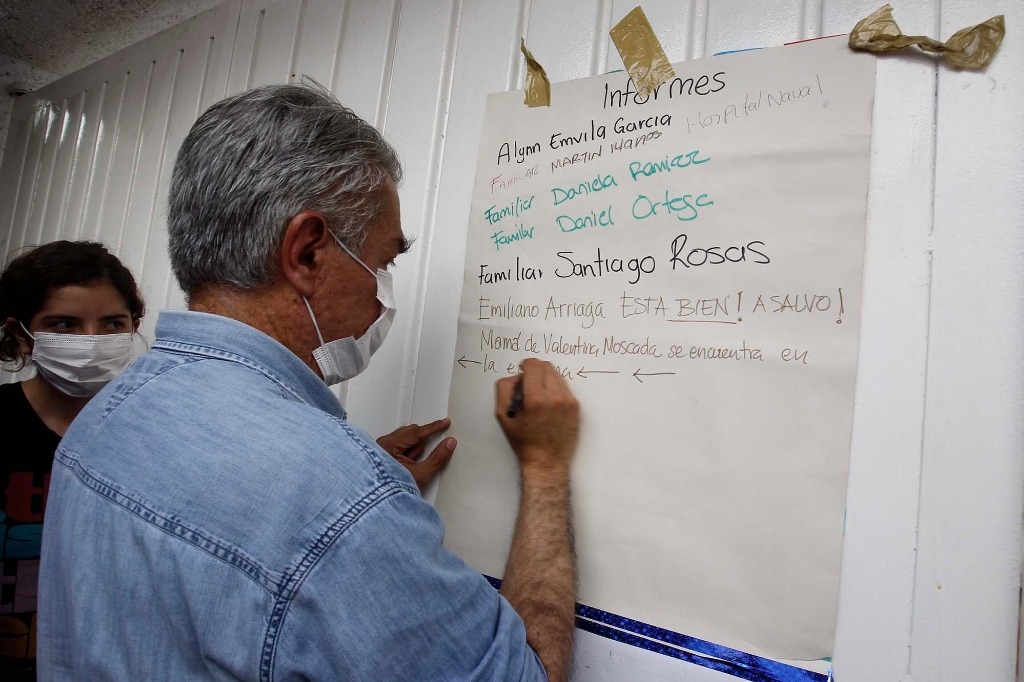 Informes
Alynn Emvila Garcia
FAMILIAR MARTIN 14 años Hospital Naval
Familiar Daniela Ramirez
Familiar Daniel Ortega
Familiar Santiago Rosas
Emiliano Arriaga ESTA BIEN! A SALVO!
Mamá de Valentina Moscada se encuentra en
← la ← ←